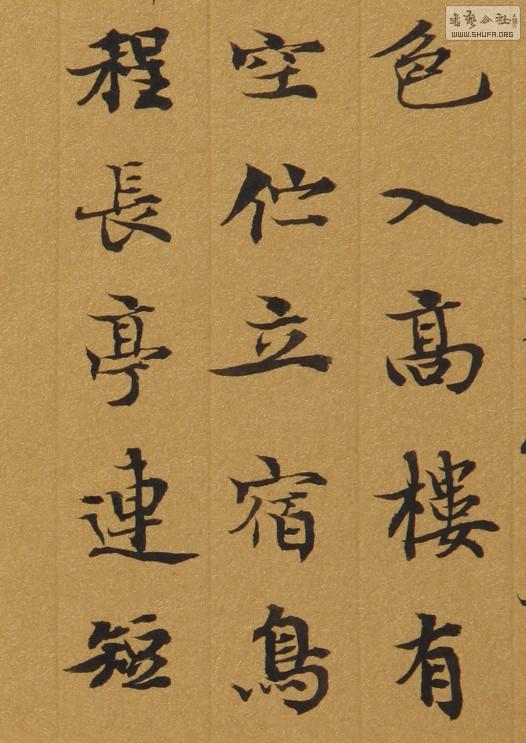 色入高樓有
空佇立宿鳥
程長亭連短
WWW.SHUFA.ORG